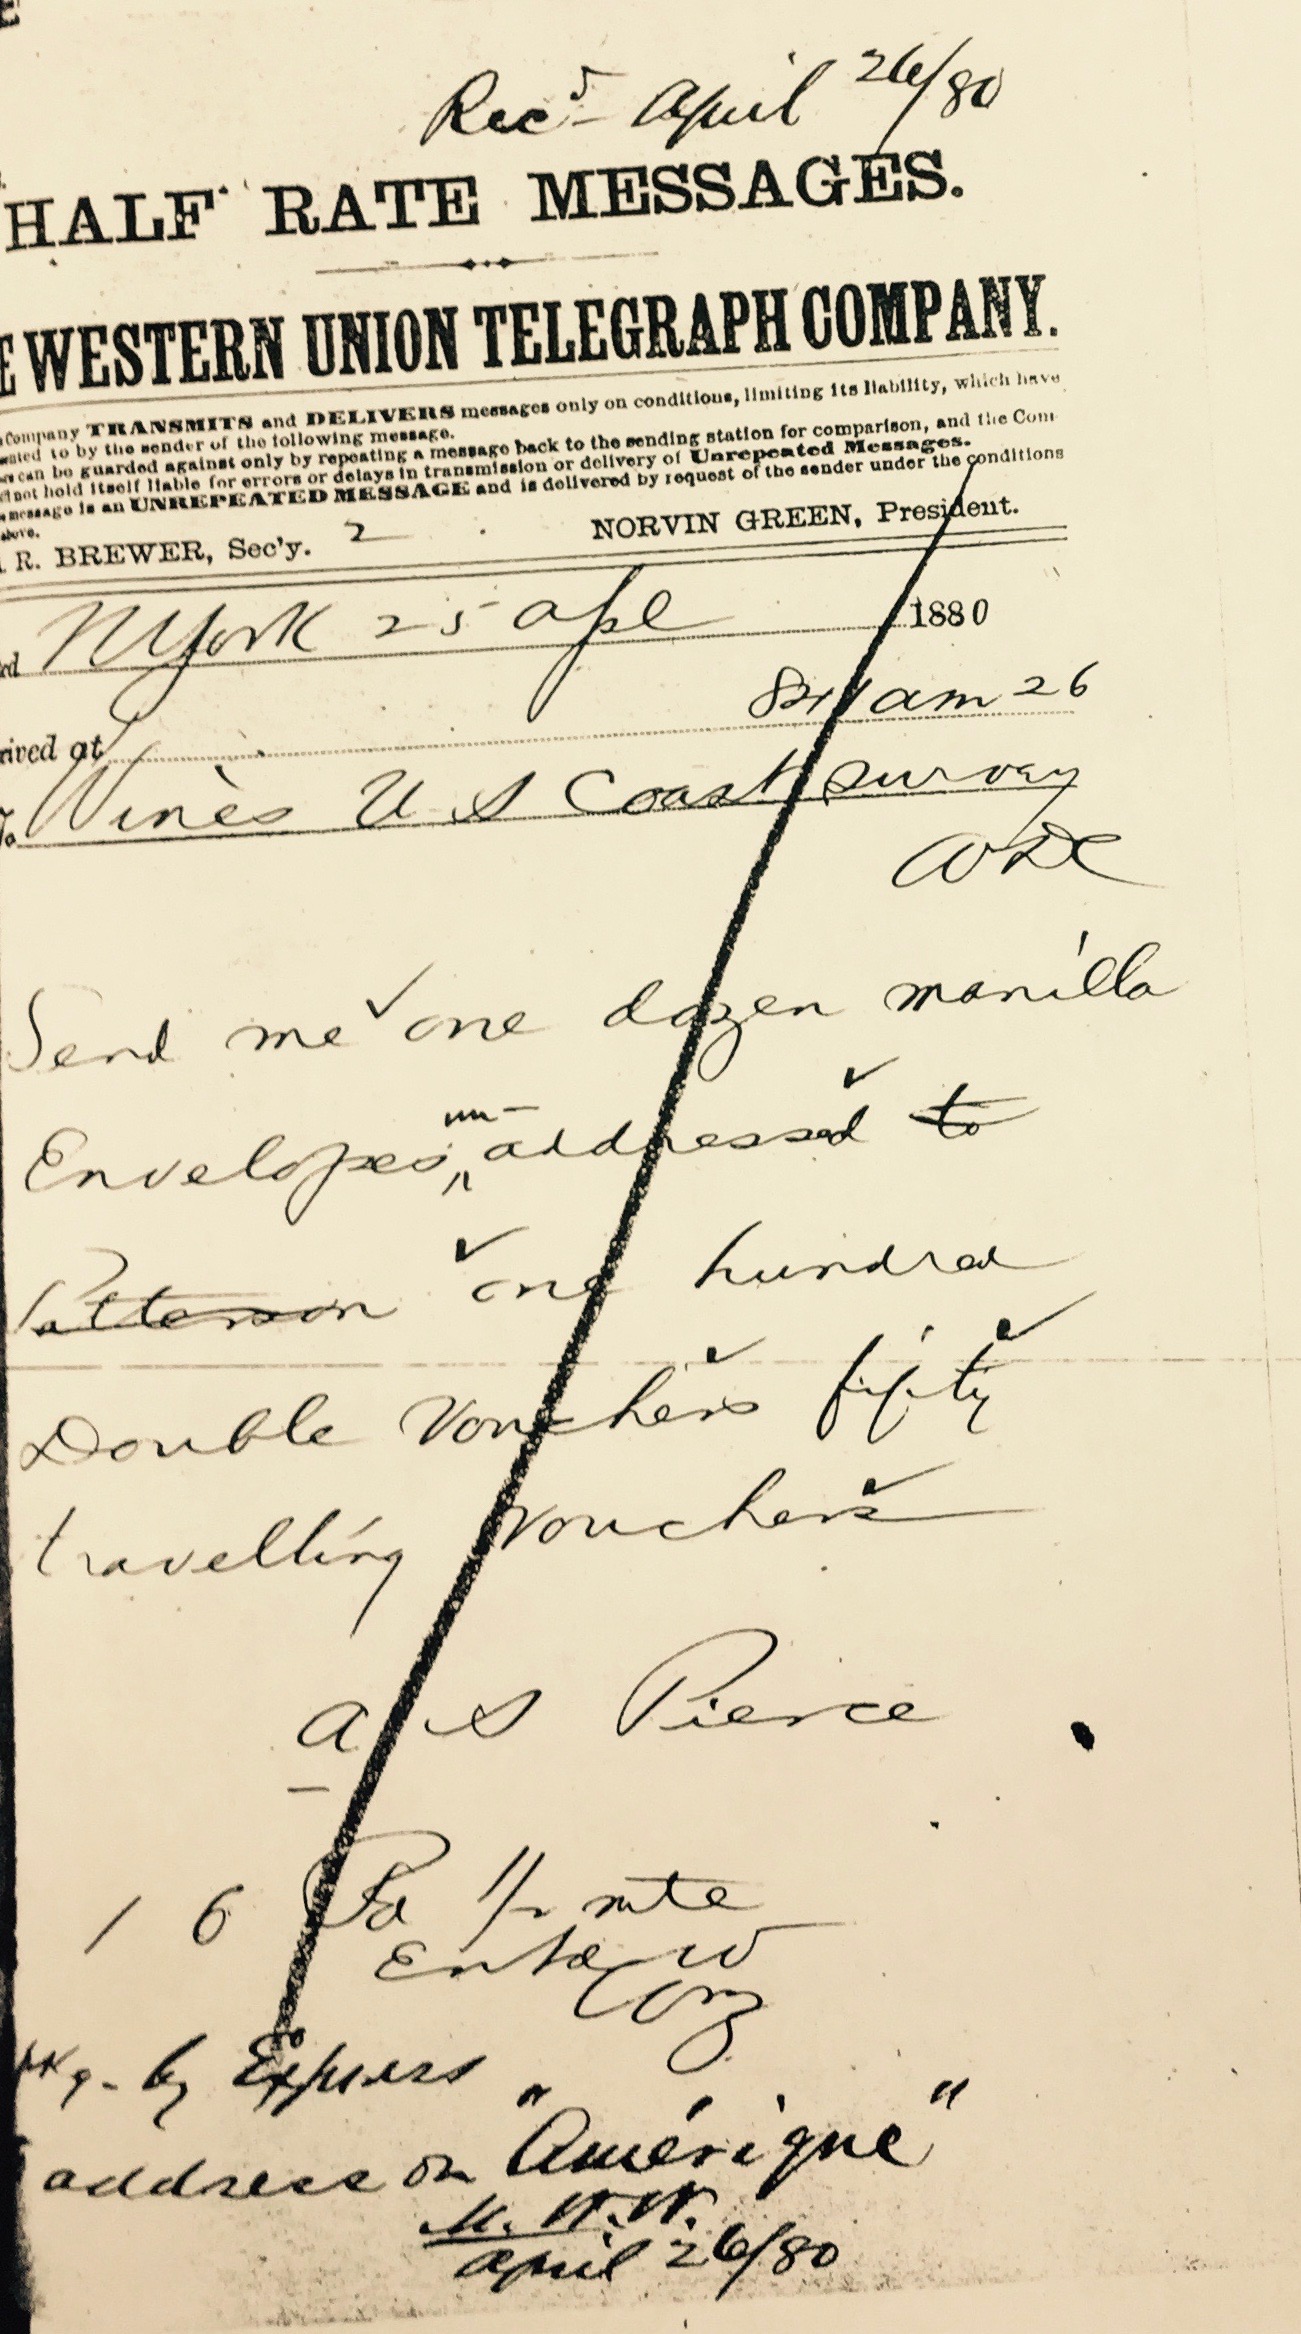 Rec'd April 26/80
HALF RATE MESSAGES.
WESTERN UNION TELEGRAPH COMPANY.
Company TRANSMITS and DELIVERS messages only on conditions, limiting its liability, which have
to by the sender of the following message.
can be guarded against only by repeating a message back to the sending station for comparison, and the Com-
not hold itself liable for errors or delays in transmission or delivery of Unrepeated Messages.
message is an UNREPEATED MESSAGE and is delivered by request of the sender under the conditions
above.
R. BREWER, Sec'y. 2 NORVIN GREEN, President.
N York 25 Apl 1880
am 26
at
To Wines U S Coast Survey
W DC
Send me one dozen manilla
Envelopes un-addressed to
Patterson one hundred
Double Vouchers fifty
travelling vouchers
A S Pierce
1 6 Pd
by Express
address on "Amérique"
M. W. W.
April 26/80